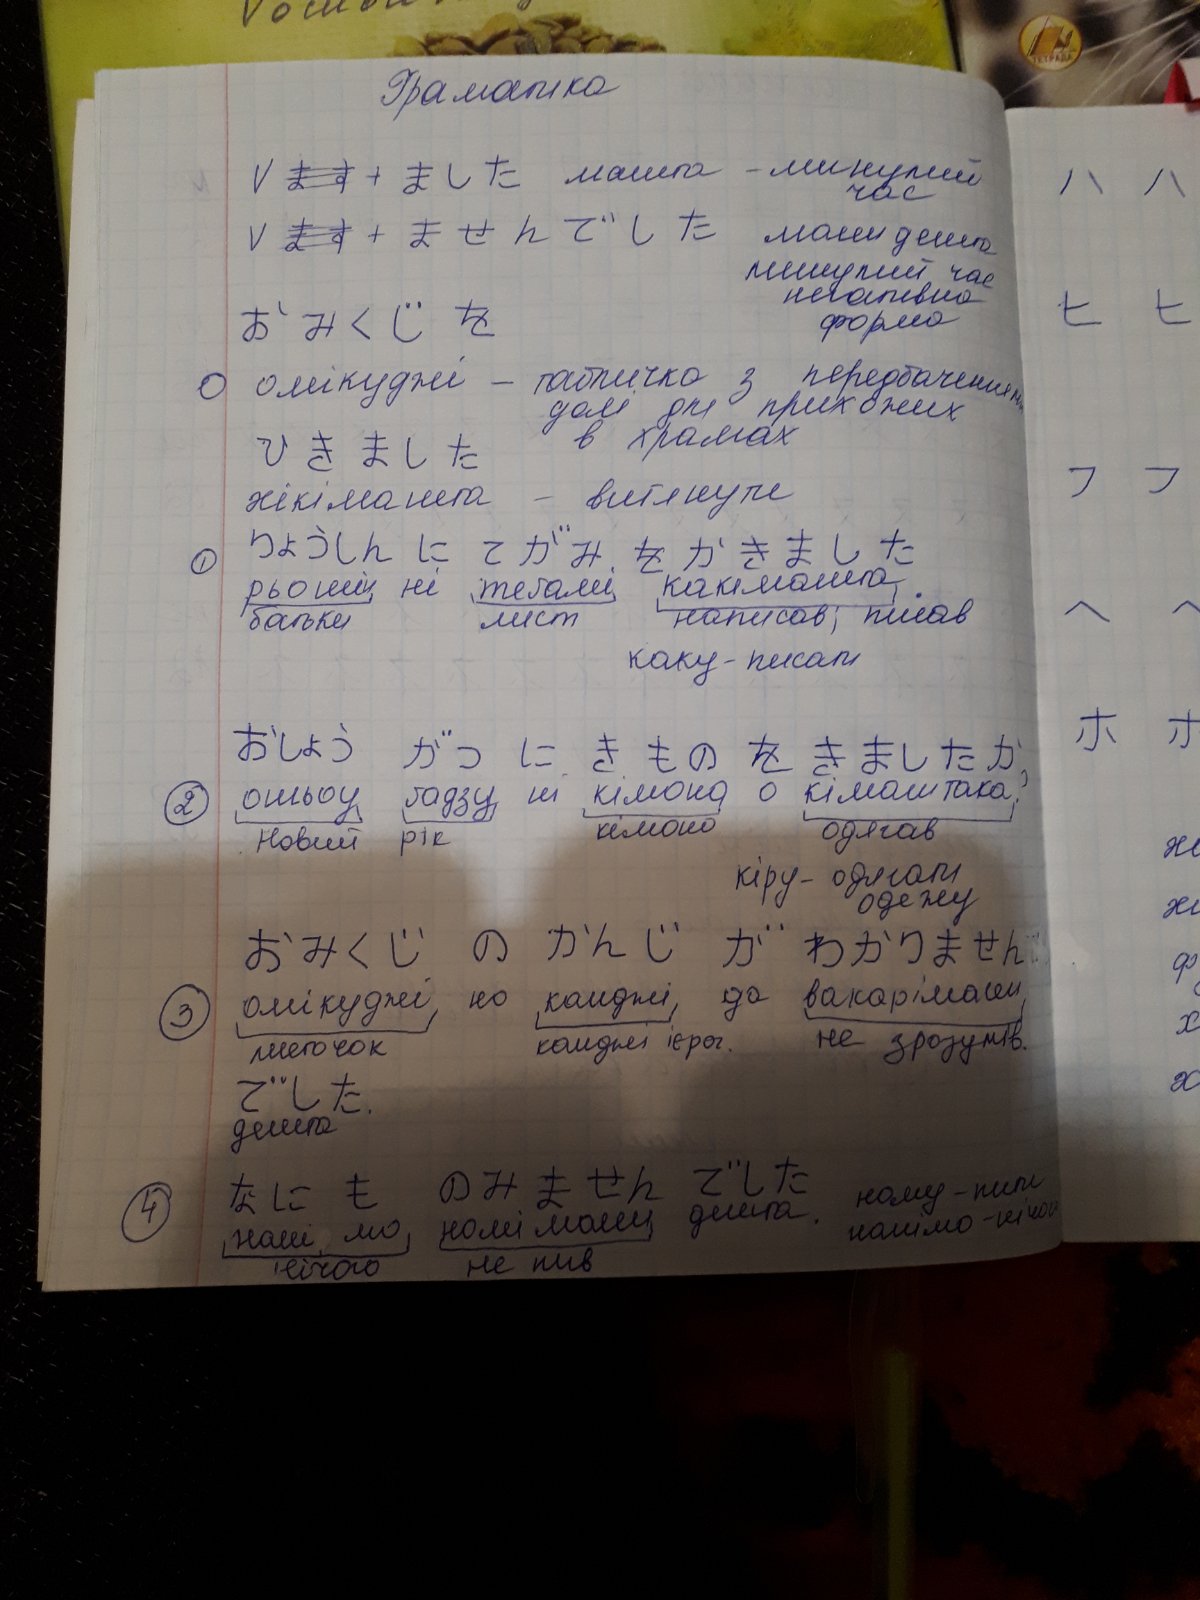 Граматика
V ます + ました машта - минулий
час
V ます + ませんでした масен дешта
минулий час
негативна
форма
おみくじ を
0 омікуджі - табличка з передбаченням
долі для прихожих
в храмах
ひきました
хікімашта - витягнути
りょうしん に てがみ を かきました
① рьошін ні тегамі какімашта
батьки лист написав, писав
каку - писати
おしょう がつ に きもの を きましたか
② ошьоу гадзу ні кімоно о кімаштака?
новий рік кімоно одягав
кіру - одягати
одежу
おみくじ の かんじ が わかりません
③ омікуджі но канджі га вакарімасен
листочок канджі ієрог. не зрозумів.
でした.
дешта
なにも のみません でした
④ нані мо номімасен дешта.
нічого не пив
ному - пити
нанімо - нічого
ハ ハ
ヒ ヒ
フ フ
ヘ ヘ
ホ ホ
ТЕТРАДА